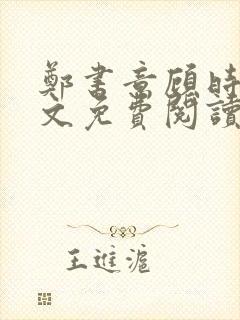 鄭書意顧時
文免費閱讀
王進滬